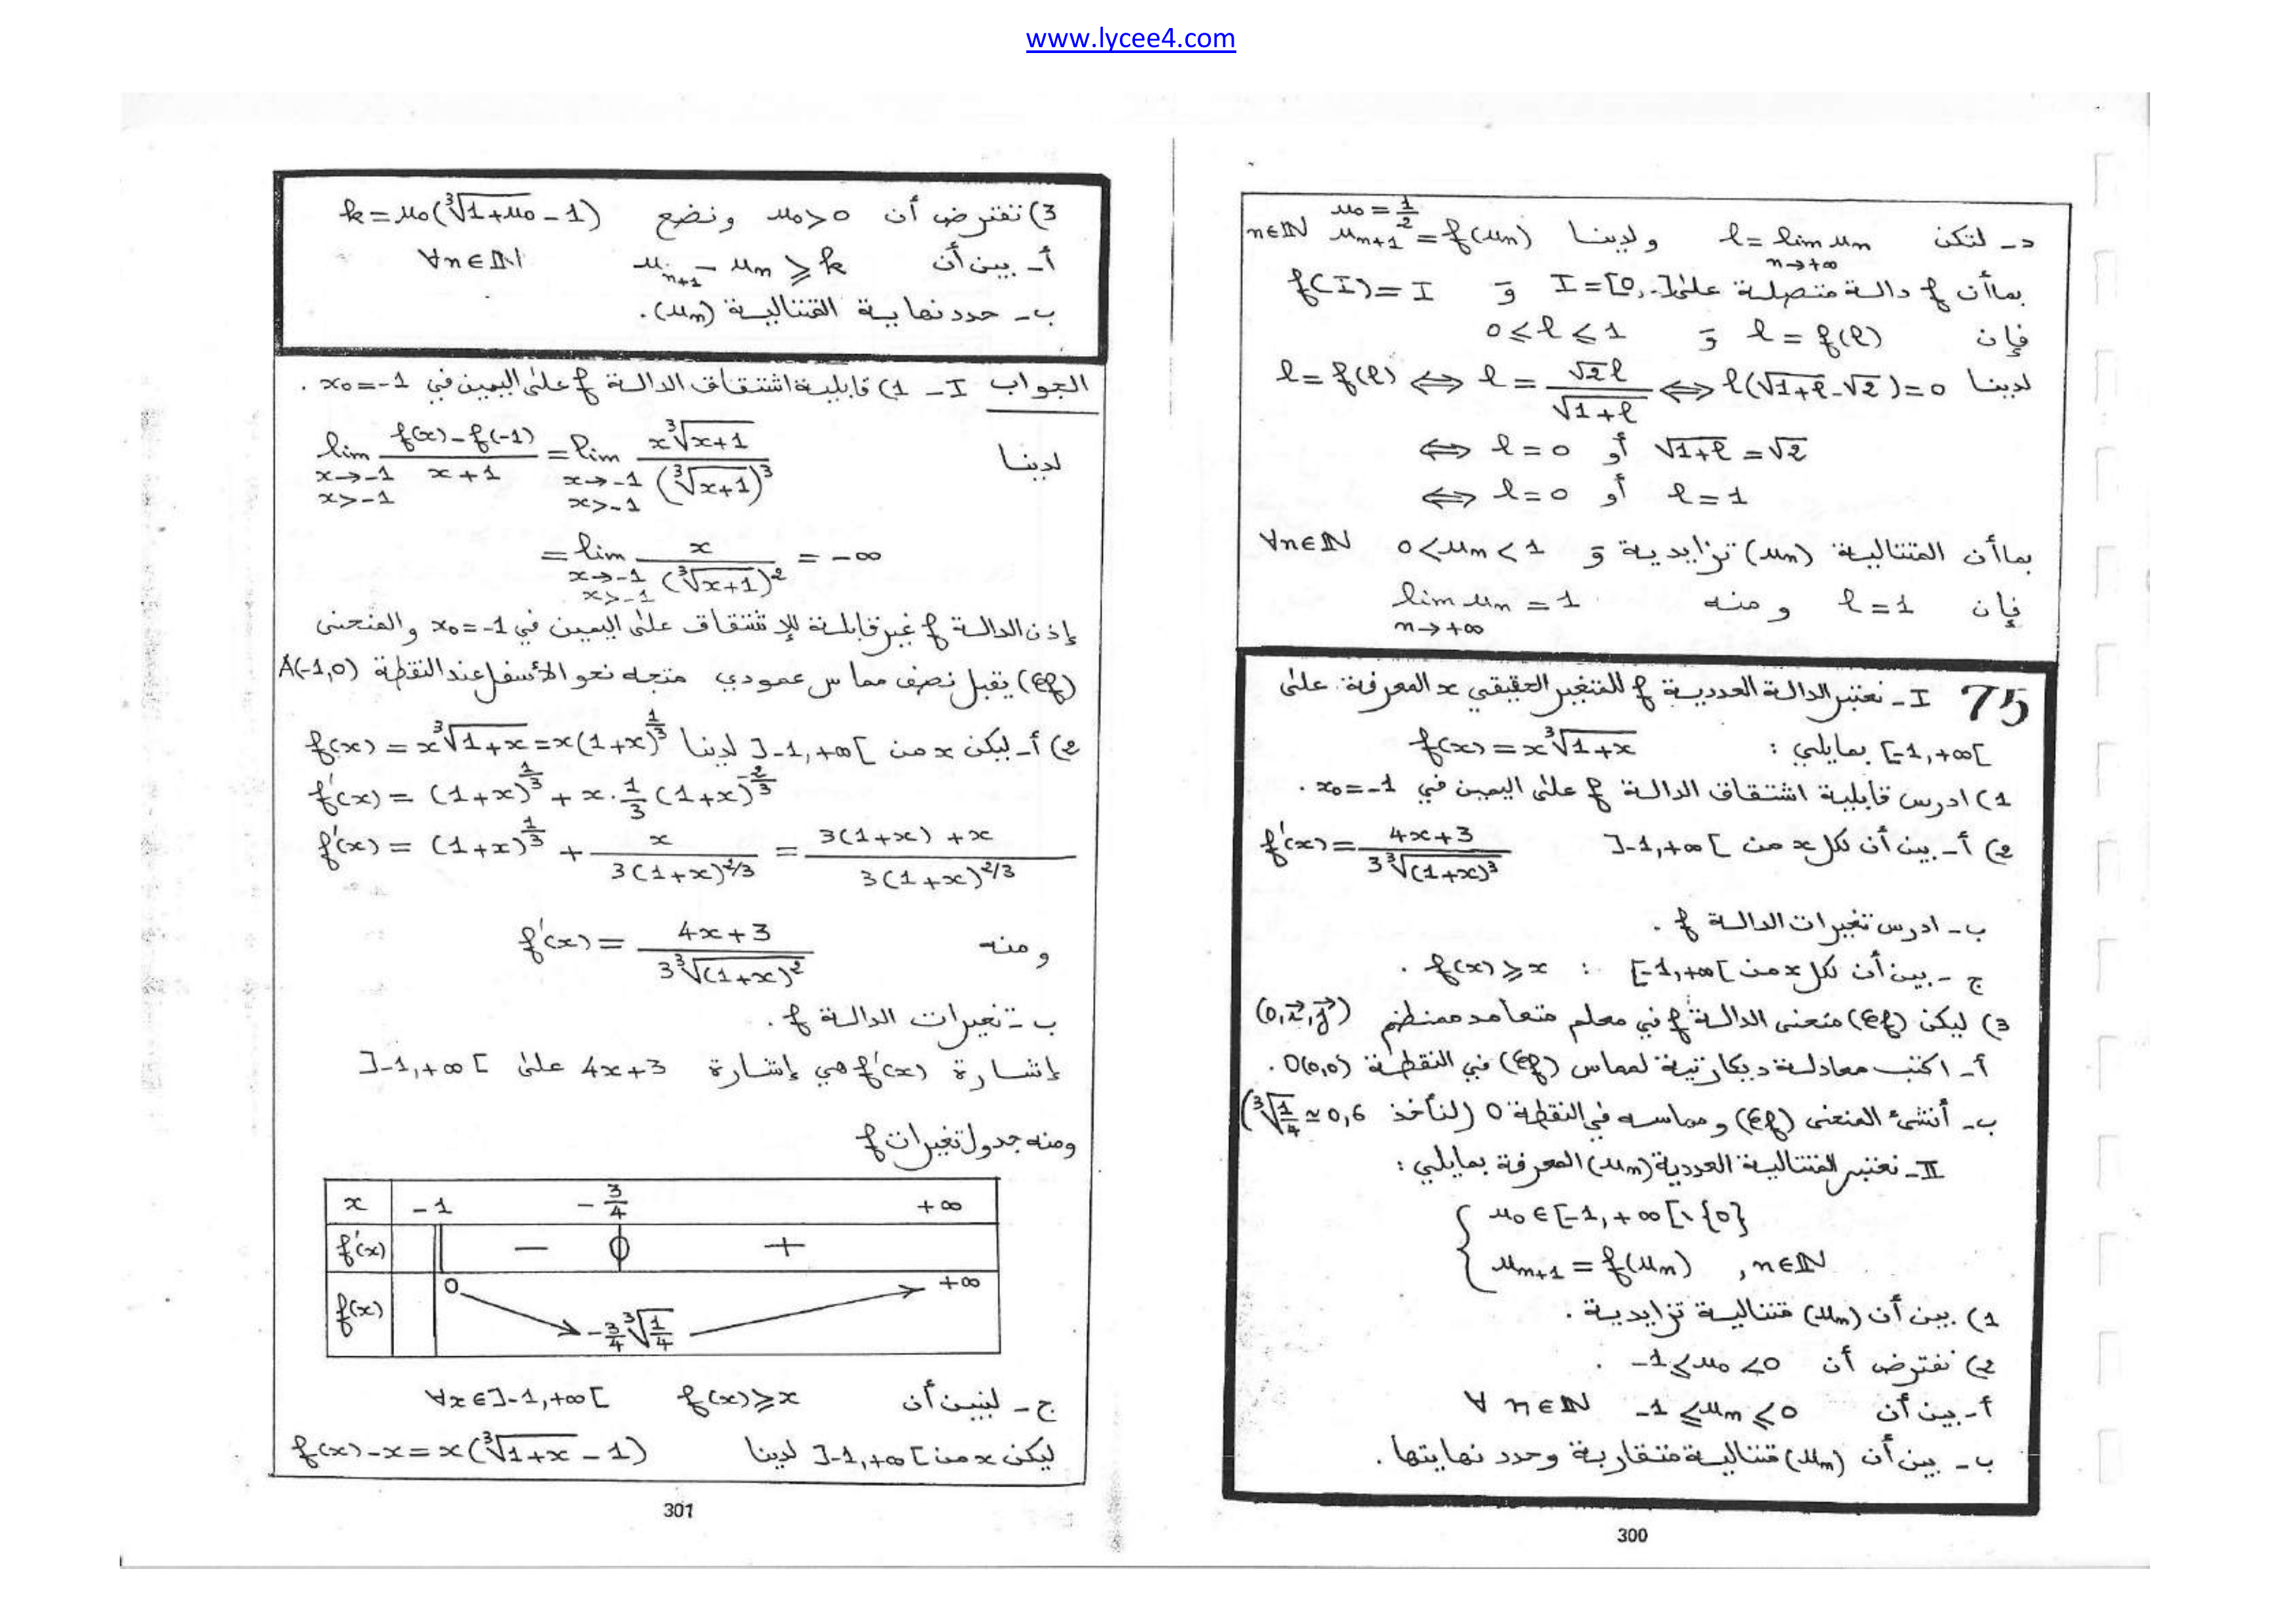 www.lycee4.com
د ـ لتكن l = lim uₙ n→+∞ ولدينا u₀ = 1/2 uₙ₊₁ = f(uₙ) n∈ℕ
بما أن f دالة متصلة على I = [0,..] و f(I) = I
فإن l = f(l) و 0 ≤ l ≤ 1
لدينا l = f(l) ⟺ l = √2 l / √(1+l) ⟺ l(√(1+l) - √2) = 0
⟺ l = 0 أو √(1+l) = √2
⟺ l = 0 أو l = 1
بما أن المتتالية (uₙ) تزايدية و 0 < uₙ < 1 ∀n∈ℕ
فإن l = 1 ومنه lim uₙ = 1 n→+∞
75 I ـ نعتبر الدالة العددية f للمتغير الحقيقي x المعرفة على
[-1,+∞[ بمايلي : f(x) = x ∛(1+x)
1) ادرس قابلية اشتقاق الدالة f على اليمين في x₀ = -1 .
2) أ ـ بين أن لكل x من ]-1,+∞[ f'(x) = (4x+3) / (3∛(1+x)³)
ب ـ ادرس تغيرات الدالة f .
ج ـ بين أن لكل x من [-1,+∞[ : f(x) ⩾ x .
3) ليكن (Cf) منحنى الدالة f في معلم متعامد ممنظم (0,i⃗,j⃗)
أ ـ اكتب معادلة ديكارتية لمماس (Cf) في النقطة O(0,0) .
ب ـ أنشئ المنحنى (Cf) ومماسه في النقطة O (لنأخذ ∛(1/4) ≃ 0,6)
II ـ نعتبر المتتالية العددية (uₙ) المعرفة بمايلي :
{ u₀ ∈ [-1,+∞[ \ {0}
uₙ₊₁ = f(uₙ) , n∈ℕ
1) بين أن (uₙ) متتالية تزايدية .
2) نفترض أن -1 ⩽ u₀ < 0 .
أ ـ بين أن -1 ⩽ uₙ ⩽ 0 ∀ n∈ℕ
ب ـ بين أن (uₙ) متتالية متقاربة وحدد نهايتها .
300
3) نفترض أن u₀ > 0 ونضع k = u₀(∛(1+u₀) - 1)
أ ـ بين أن uₙ₊₁ - uₙ ⩾ k ∀n∈ℕ
ب ـ حدد نهاية المتتالية (uₙ) .
الجواب I ـ 1) قابلية اشتقاق الدالة f على اليمين في x₀ = -1 .
لدينا lim x→-1 x>-1 (f(x) - f(-1)) / (x+1) = lim x→-1 x>-1 x∛(x+1) / (∛(x+1))³
= lim x→-1 x>-1 x / (∛(x+1))² = -∞
إذن الدالة f غير قابلة للإشتقاق على اليمين في x₀ = -1 والمنحنى
(Cf) يقبل نصف مماس عمودي متجه نحو الأسفل عند النقطة A(-1,0)
2) أ ـ ليكن x من ]-1,+∞[ لدينا f(x) = x∛(1+x) = x(1+x)^(1/3)
f'(x) = (1+x)^(1/3) + x · 1/3 (1+x)^(-2/3)
f'(x) = (1+x)^(1/3) + x / (3(1+x)^(2/3)) = (3(1+x) + x) / (3(1+x)^(2/3))
ومنه f'(x) = (4x+3) / (3∛(1+x)²)
ب ـ تغيرات الدالة f .
إشارة f'(x) هي إشارة 4x+3 على ]-1,+∞[
ومنه جدول تغيرات f
x -1 -3/4 +∞
f'(x) − 0 +
f(x) 0 -3/4 ∛(1/4) +∞
ج ـ لنبين أن f(x) ⩾ x ∀x∈]-1,+∞[
ليكن x من ]-1,+∞[ لدينا f(x) - x = x(∛(1+x) - 1)
301